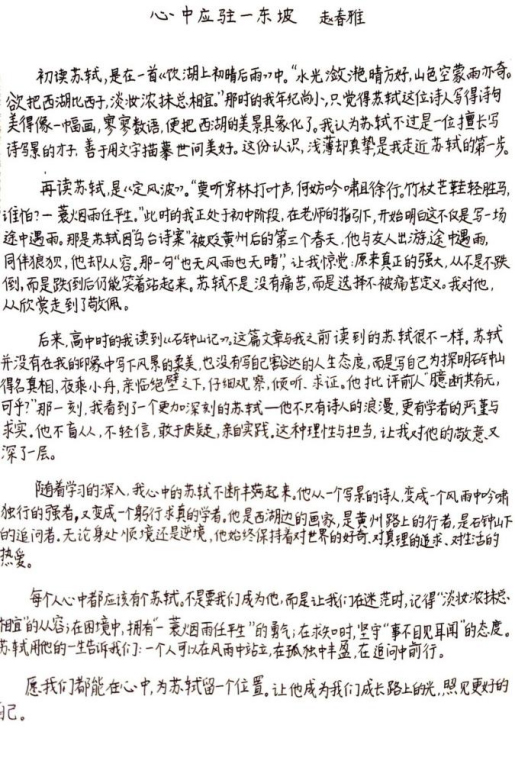 心中应驻一东坡 赵春雅
初读苏轼，是在一首《饮湖上初晴后雨》中。“水光潋滟晴方好，山色空蒙雨亦奇。
欲把西湖比西子，淡妆浓抹总相宜。”那时的我年纪尚小，只觉得苏轼这位诗人写得诗句
美得像一幅画，寥寥数语，便把西湖的美景具象化了。我认为苏轼不过是一位擅长写
诗写景的才子，善于用文字描摹世间美好。这份认识，浅薄却真挚，是我走近苏轼的第一步。
再读苏轼，是《定风波》。“莫听穿林打叶声，何妨吟啸且徐行。竹杖芒鞋轻胜马，
谁怕？一蓑烟雨任平生。”此时的我正处于初中阶段，在老师的指引下，开始明白这不仅是写一场
途中遇雨。那是苏轼因“乌台诗案”被贬黄州后的第三个春天，他与友人出游，途中遇雨，
同伴狼狈，他却从容。那一句“也无风雨也无晴”，让我惊觉：原来真正的强大，从不是不跌
倒，而是跌倒后仍能笑着站起来。苏轼不是没有痛苦，而是选择不被痛苦定义。我对他，
从欣赏走到了敬佩。
后来，高中时的我读到《石钟山记》，这篇文章与我之前读到的苏轼很不一样。苏轼
并没有在我的印象中写下风景的柔美，也没有写自己豁达的人生态度，而是写自己为探明石钟山
得名真相，夜乘小舟，亲临绝壁之下，仔细观察，倾听、求证。他批评前人“臆断其有无，
可乎？”那一刻，我看到了一个更加深刻的苏轼——他不只有诗人的浪漫，更有学者的严谨与
求实。他不盲从，不轻信，敢于质疑，亲自实践。这种理性与担当，让我对他的敬意又
深了一层。
随着学习的深入，我心中的苏轼不断丰满起来。他从一个写景的诗人，变成一个风雨中吟啸
独行的强者，又变成一个躬行求真的学者。他是西湖边的画家，是黄州路上的行者，是石钟山下
的追问者。无论身处顺境还是逆境，他始终保持着对世界的好奇、对真理的追求、对生活的
热爱。
每个人心中都应该有个苏轼。不是要我们成为他，而是让我们在迷茫时，记得“淡妆浓抹总
相宜”的从容；在困境中，拥有“一蓑烟雨任平生”的勇气；在求知时，坚守“事不目见耳闻”的态度。
苏轼用他的一生告诉我们：一个人可以在风雨中站立，在孤独中丰盈，在追问中前行。
愿我们都能在心中，为苏轼留一个位置。让他成为我们成长路上的光，照见更好的
自己。